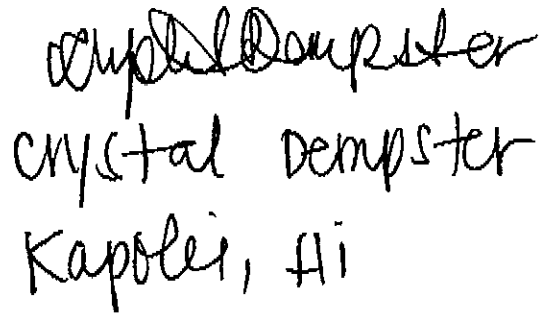 Crystal Dempster
Crystal Dempster
Kapolei, Hi